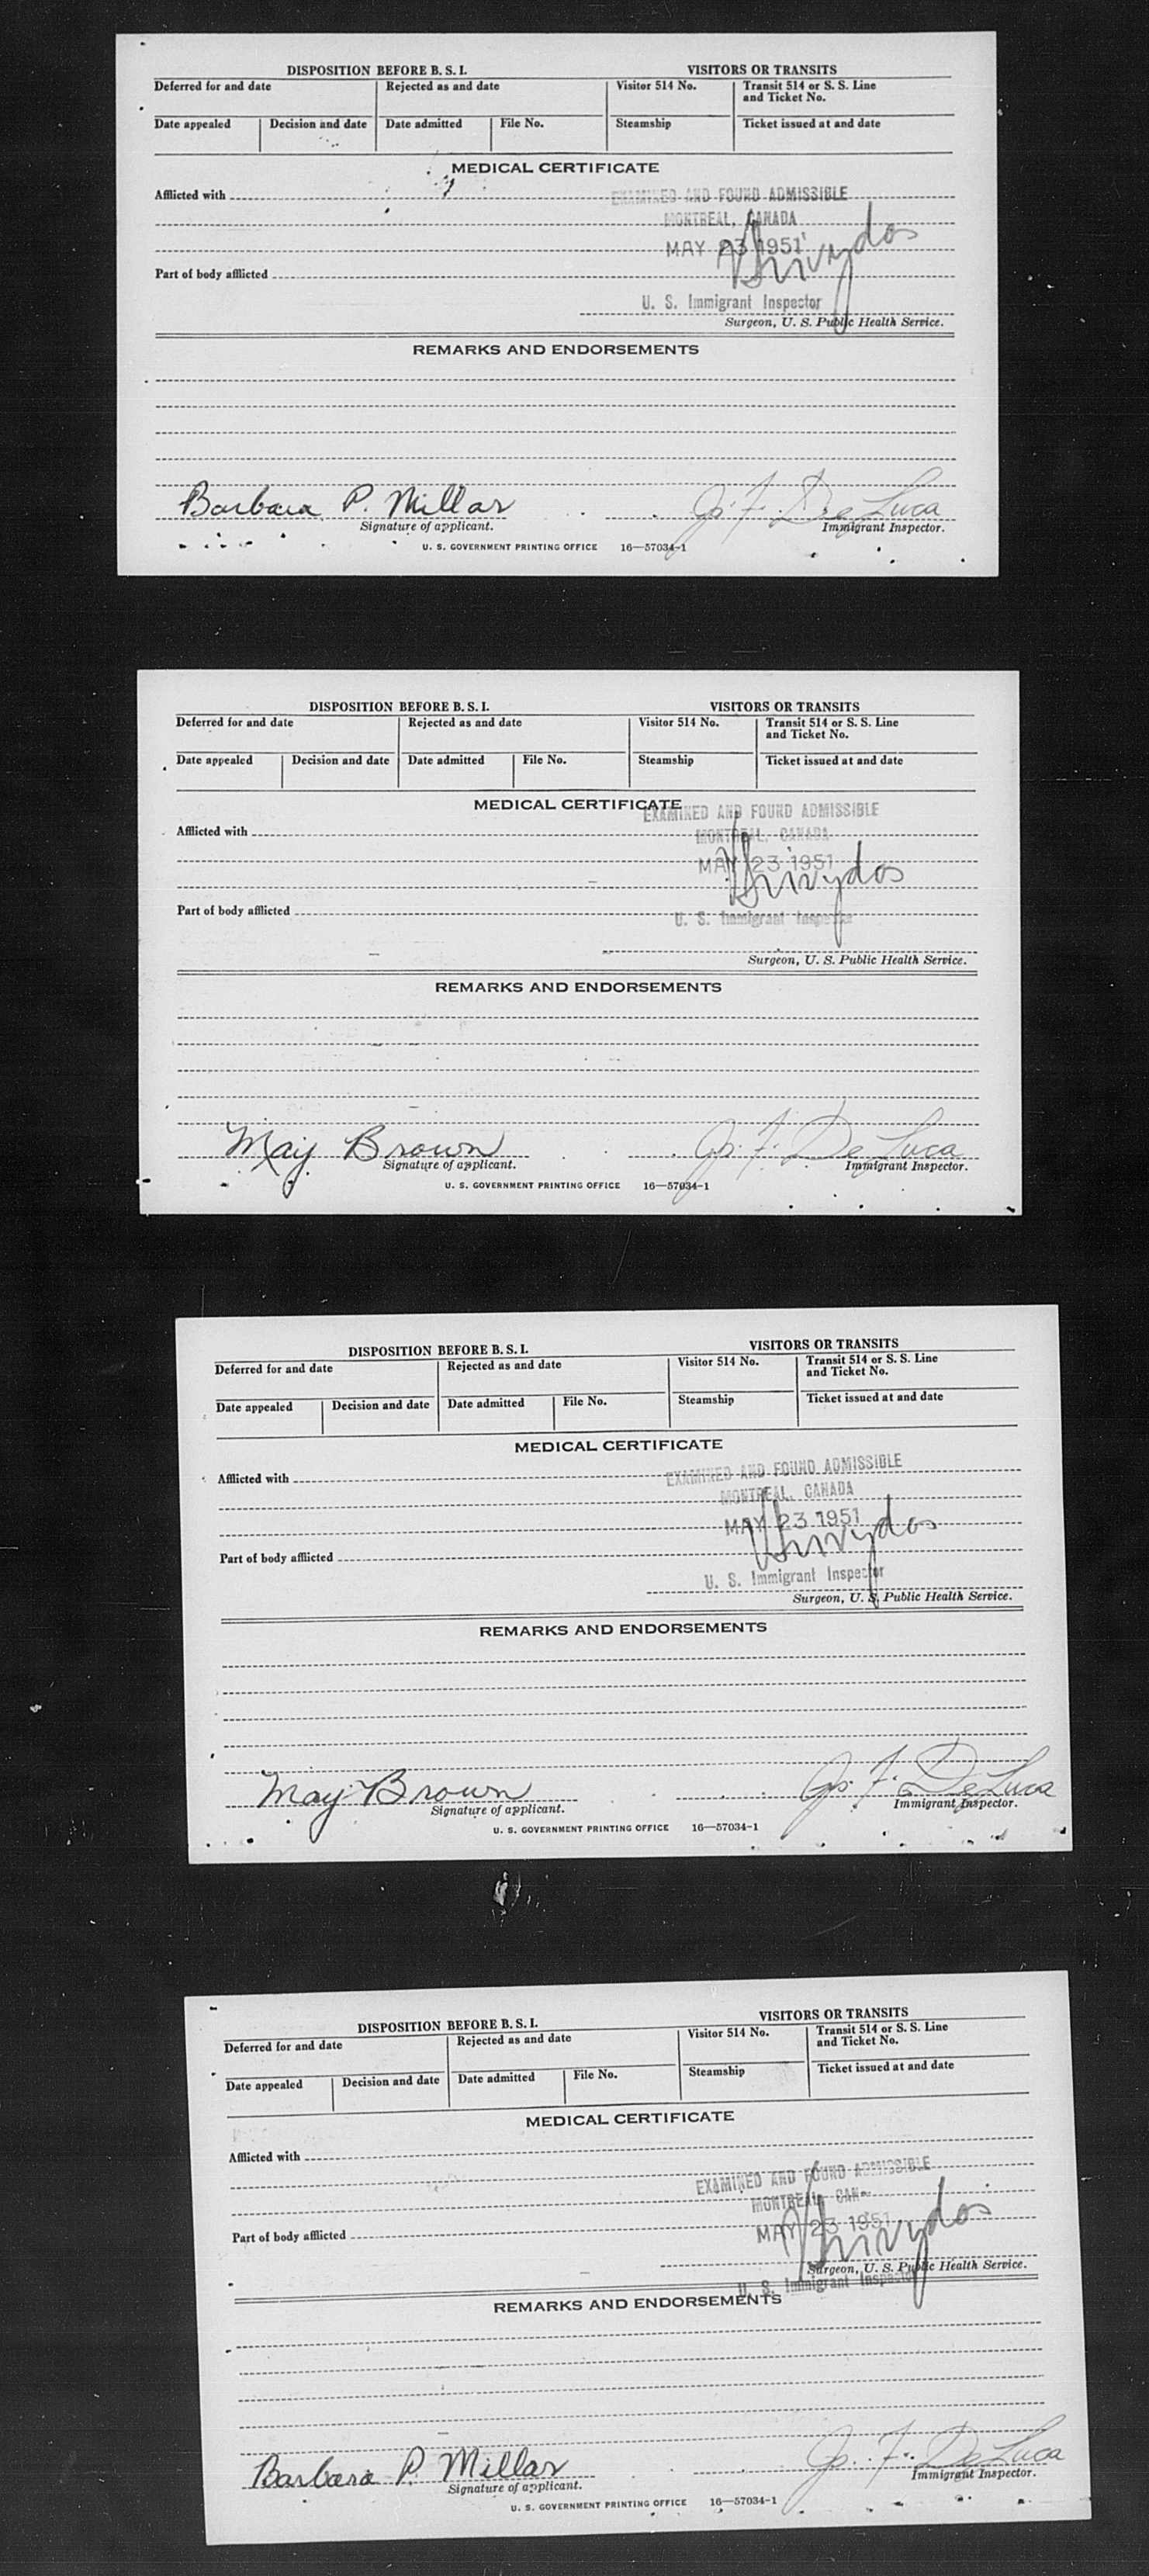 DISPOSITION BEFORE B. S. I. VISITORS OR TRANSITS
Deferred for and date Rejected as and date Visitor 514 No. Transit 514 or S. S. Line
and Ticket No.
Date appealed Decision and date Date admitted File No. Steamship Ticket issued at and date
MEDICAL CERTIFICATE
Afflicted with EXAMINED AND FOUND ADMISSIBLE
MONTREAL, CANADA
MAY 23 1951
Part of body afflicted
U. S. Immigrant Inspector
Surgeon, U. S. Public Health Service.
REMARKS AND ENDORSEMENTS
Barbara P. Millar Jos. F. De Luca
Signature of applicant. Immigrant Inspector.
U. S. GOVERNMENT PRINTING OFFICE 16—57034-1
DISPOSITION BEFORE B. S. I. VISITORS OR TRANSITS
Deferred for and date Rejected as and date Visitor 514 No. Transit 514 or S. S. Line
and Ticket No.
Date appealed Decision and date Date admitted File No. Steamship Ticket issued at and date
MEDICAL CERTIFICATE
EXAMINED AND FOUND ADMISSIBLE
Afflicted with MONTREAL, CANADA
MAY 23 1951
Part of body afflicted U. S. Immigrant Inspector
Surgeon, U. S. Public Health Service.
REMARKS AND ENDORSEMENTS
May Brown Jos. F. De Luca
Signature of applicant. Immigrant Inspector.
U. S. GOVERNMENT PRINTING OFFICE 16—57034-1
DISPOSITION BEFORE B. S. I. VISITORS OR TRANSITS
Deferred for and date Rejected as and date Visitor 514 No. Transit 514 or S. S. Line
and Ticket No.
Date appealed Decision and date Date admitted File No. Steamship Ticket issued at and date
MEDICAL CERTIFICATE
Afflicted with EXAMINED AND FOUND ADMISSIBLE
MONTREAL, CANADA
MAY 23 1951
Part of body afflicted
U. S. Immigrant Inspector
Surgeon, U. S. Public Health Service.
REMARKS AND ENDORSEMENTS
May Brown Jos. F. De Luca
Signature of applicant. Immigrant Inspector.
U. S. GOVERNMENT PRINTING OFFICE 16—57034-1
DISPOSITION BEFORE B. S. I. VISITORS OR TRANSITS
Deferred for and date Rejected as and date Visitor 514 No. Transit 514 or S. S. Line
and Ticket No.
Date appealed Decision and date Date admitted File No. Steamship Ticket issued at and date
MEDICAL CERTIFICATE
Afflicted with
EXAMINED AND FOUND ADMISSIBLE
MONTREAL, CAN
MAY 23 1951
Part of body afflicted
Surgeon, U. S. Public Health Service.
U. S. Immigrant Inspector
REMARKS AND ENDORSEMENTS
Barbara P. Millar Jos. F. De Luca
Signature of applicant. Immigrant Inspector.
U. S. GOVERNMENT PRINTING OFFICE 16—57034-1